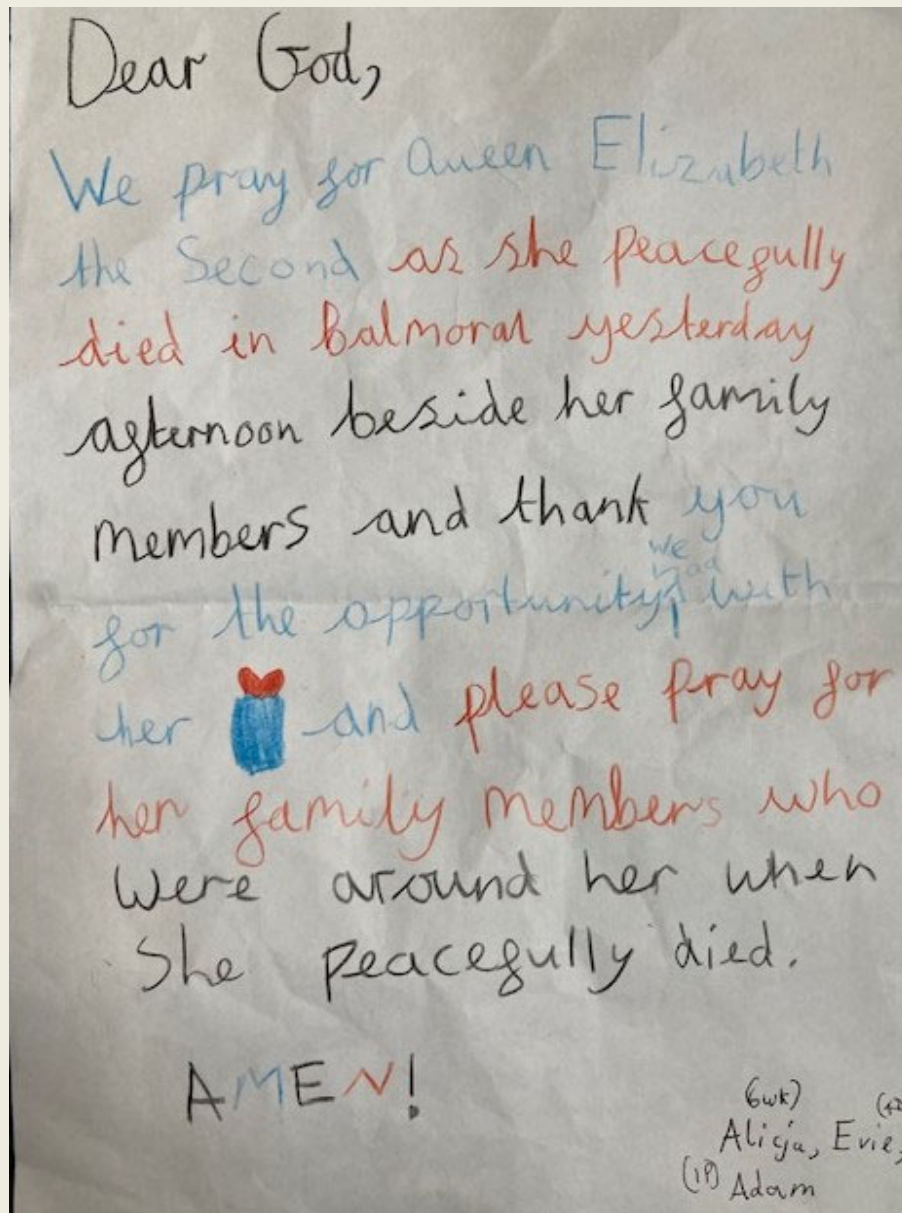 Dear God,
We pray for Queen Elizabeth
the Second as she peacefully
died in Balmoral yesterday
afternoon beside her family
members and thank you
we had
for the opportunity with
her and please pray for
her family members who
were around her when
She peacefully died.
AMEN!
(6wk)
Alicja, Evie,
(1P) Adam